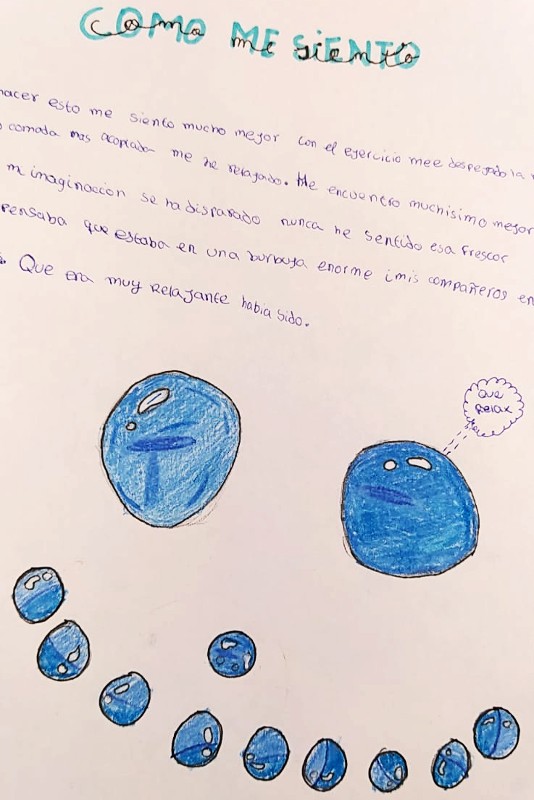 COMO ME SIENTO
como me siento
hacer esto me siento mucho mejor con el ejercicio mee despejado la
comada mas acoplada me he relajado. Me encuentro muchisimo mejor
m imaginaccion se ha disparado nunca he sentido esa frescor
pensaba que estaba en una burbuja enorme i mis compañeros en
Que era muy Relajante habia sido.
Que
Relax